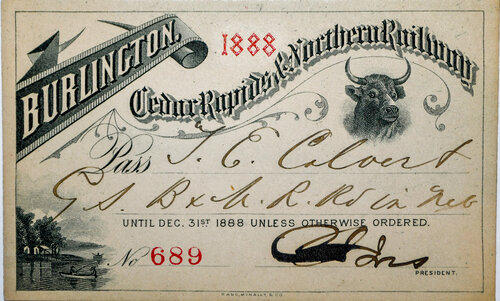 BURLINGTON,
1888
Cedar Rapids & Northern Railway
Pass T. E. Calvert
G S. B & M. R. Rd in Neb
UNTIL DEC. 31ST 1888 UNLESS OTHERWISE ORDERED.
No 689
PRESIDENT.
RAND, MCNALLY & CO.